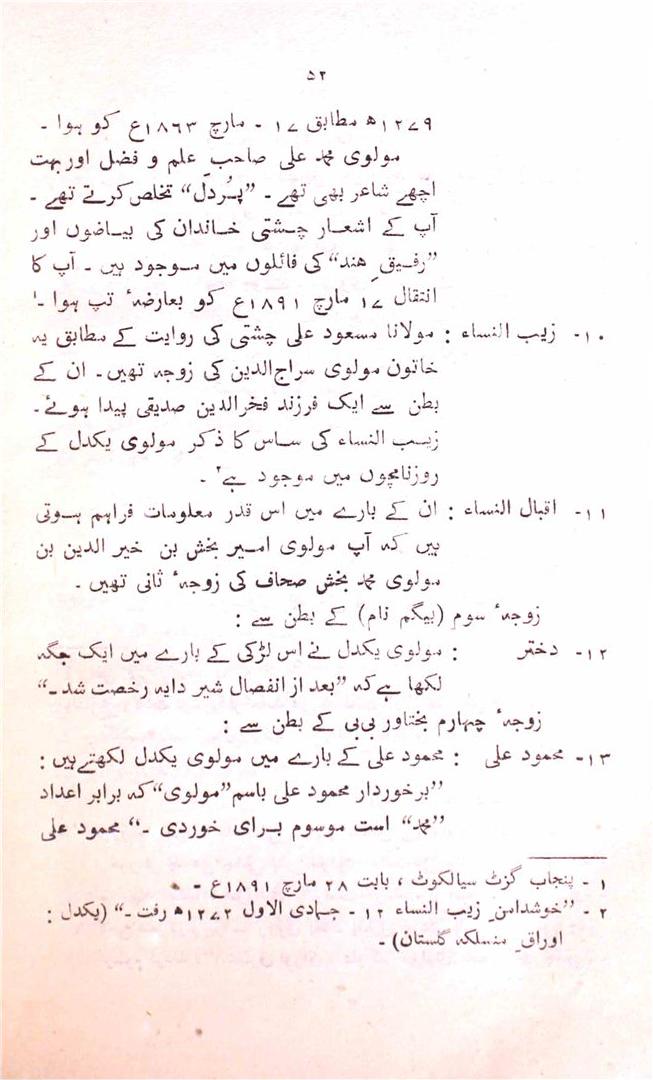 ۵۲
۱۲۷۹ھ مطابق ۱۷ - مارچ ۱۸۶۳ع کو ہوا -
مولوی محمد علی صاحبِ علم و فضل اور بہت
اچھے شاعر بھی تھے - ”پُردل“ تخلص کرتے تھے -
آپ کے اشعار چشتی خاندان کی بیاضوں اور
”رفیقِ ہند“ کی فائلوں میں موجود ہیں - آپ کا
انتقال ۱۷ مارچ ۱۸۹۱ع کو بعارضۂ تپ ہوا -۱
۱۰- زیب النساء : مولانا مسعود علی چشتی کی روایت کے مطابق یہ
خاتون مولوی سراج الدین کی زوجہ تھیں - ان کے
بطن سے ایک فرزند فخرالدین صدیقی پیدا ہوئے -
زیب النساء کی ساس کا ذکر مولوی یکدل کے
روزنامچوں میں موجود ہے۲ -
۱۱- اقبال النساء : ان کے بارے میں اس قدر معلومات فراہم ہوتی
ہیں کہ آپ مولوی امیر بخش بن خیر الدین بن
مولوی محمد بخش صحاف کی زوجۂ ثانی تھیں -
زوجۂ سوم (بیگم نام) کے بطن سے :
۱۲- دختر : مولوی یکدل نے اس لڑکی کے بارے میں ایک جگہ
لکھا ہے کہ ”بعد از انفصال شیر دایہ رخصت شد -“
زوجۂ چہارم بختاور بی بی کے بطن سے :
۱۳- محمود علی : محمود علی کے بارے میں مولوی یکدل لکھتے ہیں :
”برخوردار محمود علی باسم ”مولوی“ کہ برابر اعداد
”محمد“ است موسوم برای خوردی -“ محمود علی
۱ - پنجاب گزٹ سیالکوٹ ، بابت ۲۸ مارچ ۱۸۹۱ع -
۲ - ”خوشدامنِ زیب النساء ۱۲ - جمادی الاول ۱۲۷۲ھ رفت -“ (یکدل :
اوراقِ منسلکہ گلستان) -